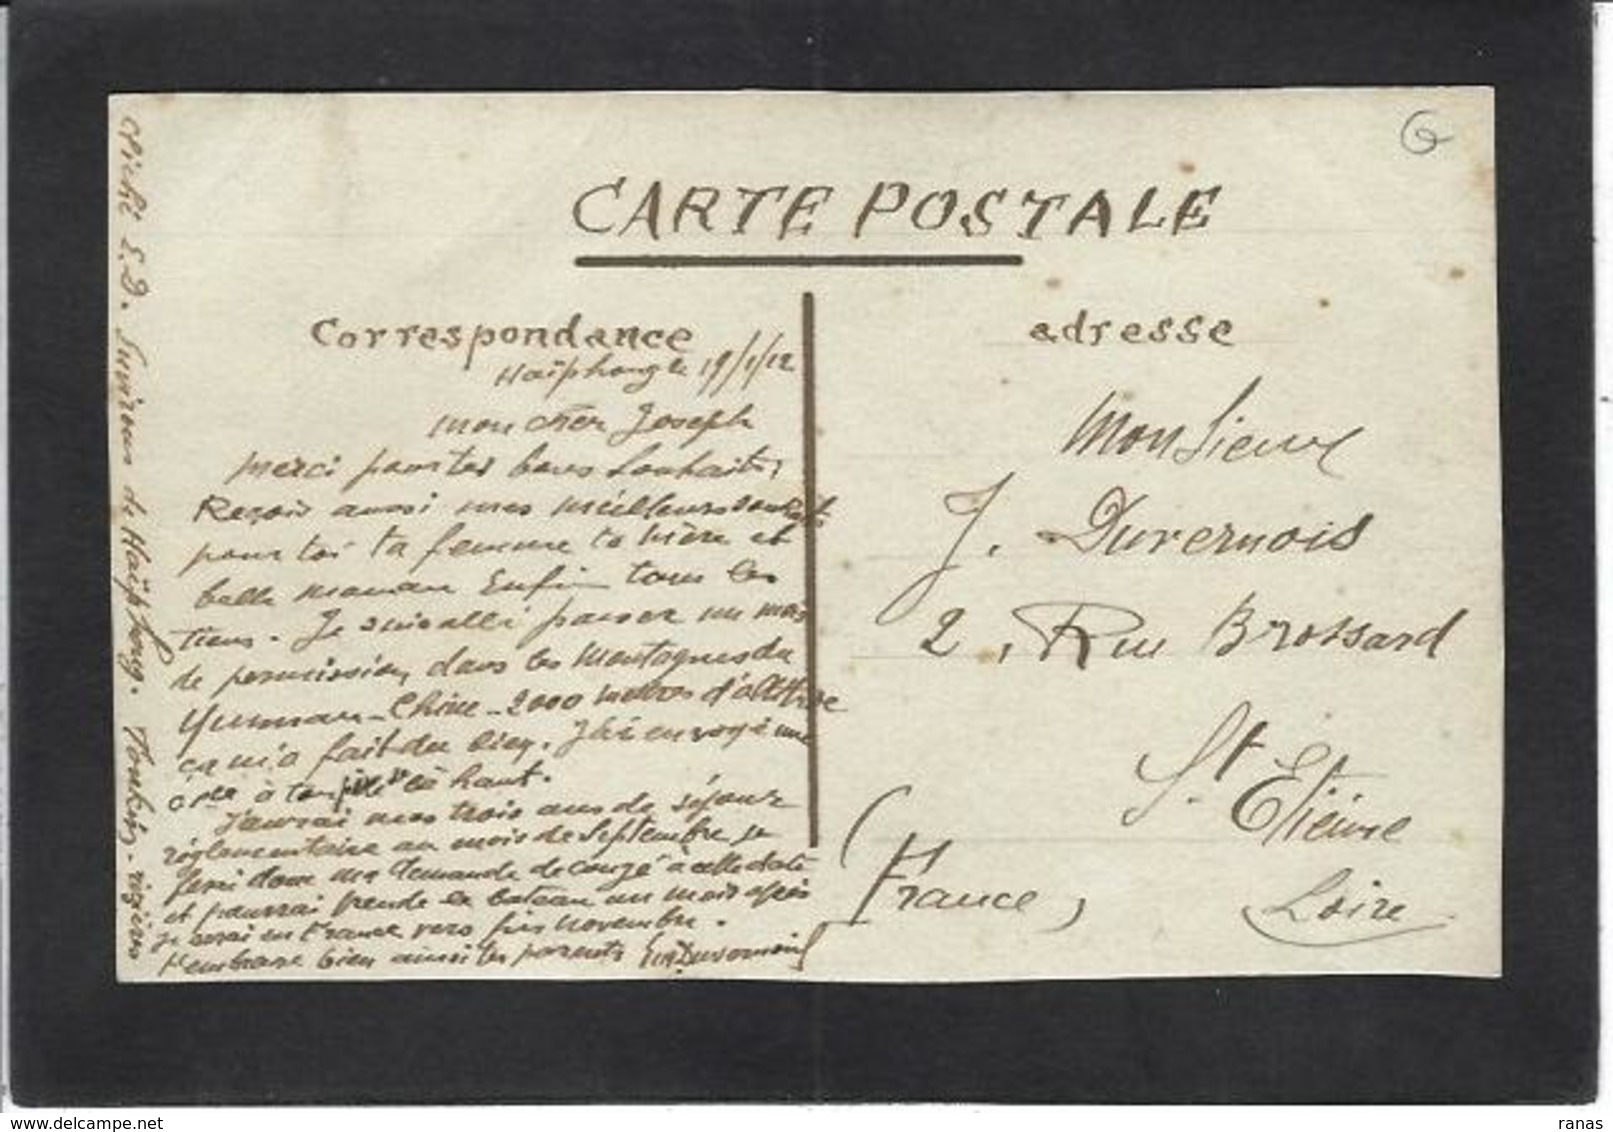 G
CARTE POSTALE
Correspondance
adresse
Haïphong le 19/1/12
Mon cher Joseph
Merci pour tes bons souhaits,
Reçois aussi mes meilleurs souhaits
pour toi ta femme ta mère et
belle maman Enfin tous les
tiens. Je suis allé passer un mois
de permission, dans les Montagnes du
Yunnan - Chine - 2000 mètres d'altitude
ça m'a fait du bien. J'ai envoyé une
à ton père de là haut.
J'aurai mes trois ans de séjour
réglementaire au mois de Septembre je
ferai donc ma demande de congé à cette date
et pourrai prendre le bateau un mois après
je serai en France vers fin novembre.
t'embrasse bien ainsi tes parents Duvernois
Cliché E.D. Environs de Haïphong. Tonkin - rizières
Monsieur
J. Duvernois
2, Rue Brossard
St Etienne
Loire
(France)
www.delcampe.net
ranas